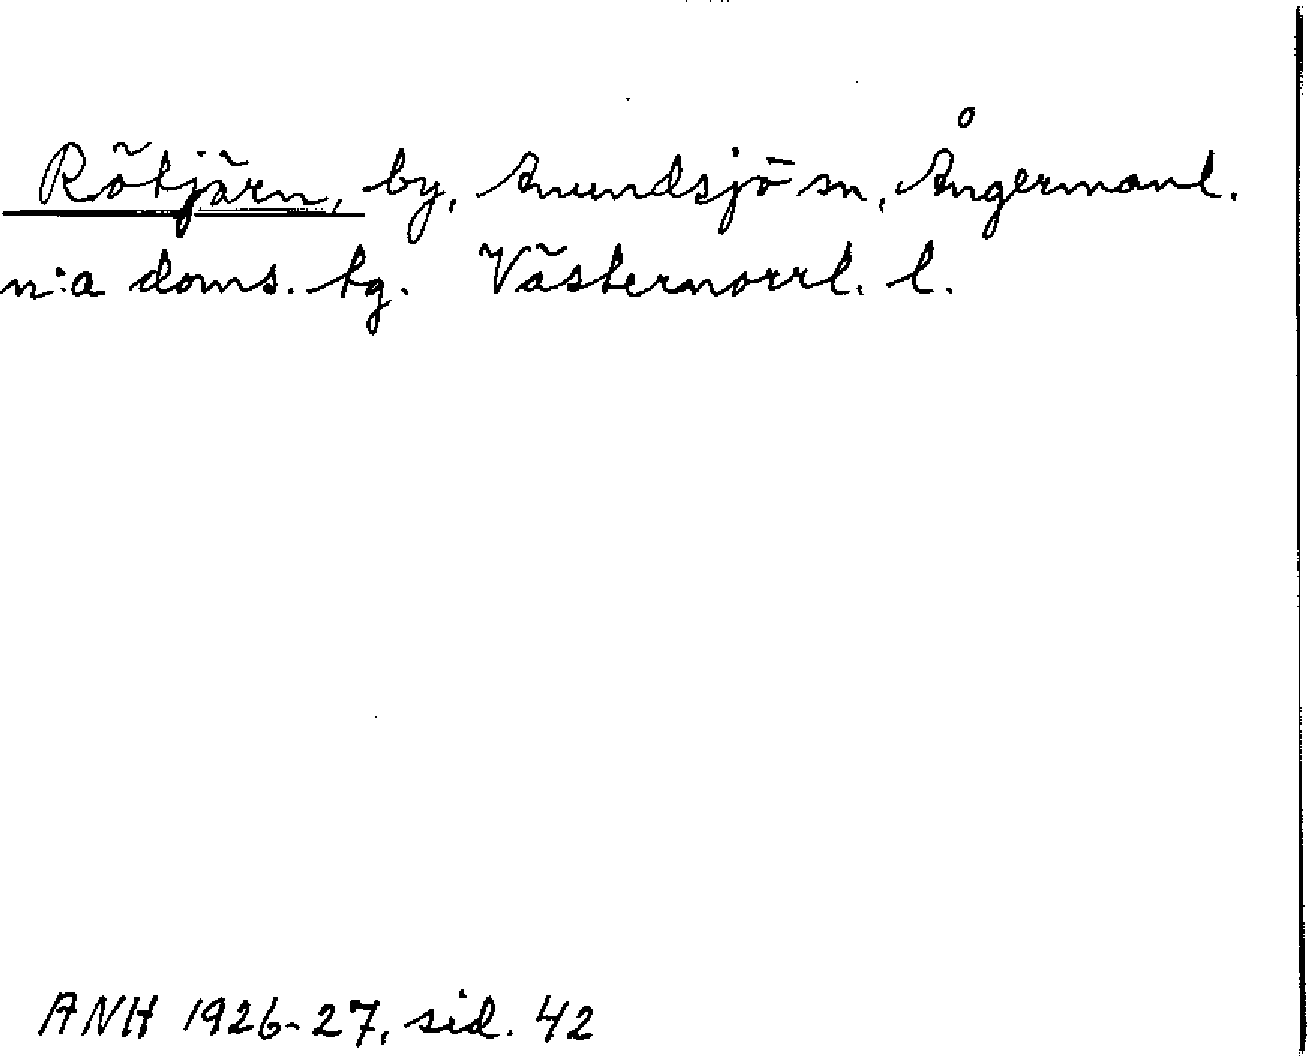 Rötjärn, by, Anundsjö sn, Ångermanl.
n:a doms. tg. Västernorrl. l.
ANH 1926-27, sid. 42